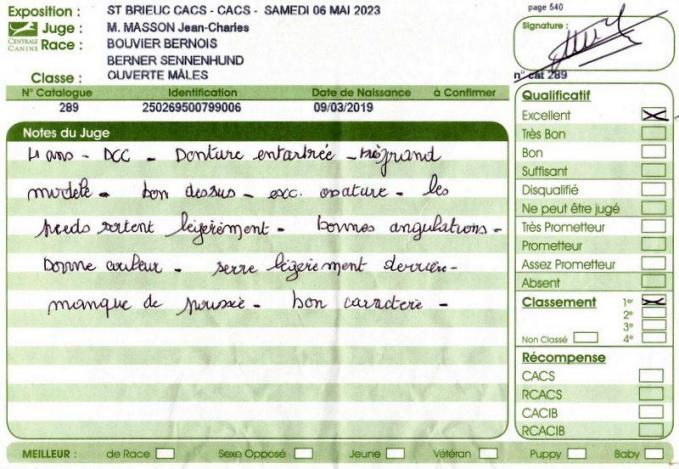 Exposition : ST BRIEUC CACS - CACS - SAMEDI 06 MAI 2023
page 540
CENTRALE CANINE
Juge : M. MASSON Jean-Charles
Signature :
Race : BOUVIER BERNOIS
BERNER SENNENHUND
Classe : OUVERTE MÂLES
n° cat 289
N° Catalogue Identification Date de Naissance à Confirmer
289 250269500799006 09/03/2019
Notes du Juge
4 ans - DCC - Denture entartrée - très grand
modèle - bon dessus - exc. ossature - les
pieds sortent légèrement - bonnes angulations -
bonne couleur - serre légèrement derrière -
manque de poussée - bon caractère -
Qualificatif
Excellent
Très Bon
Bon
Suffisant
Disqualifié
Ne peut être jugé
Très Prometteur
Prometteur
Assez Prometteur
Absent
Classement 1er
2e
3e
Non Classé 4e
Récompense
CACS
RCACS
CACIB
RCACIB
MEILLEUR : de Race Sexe Opposé Jeune Vétéran Puppy Baby